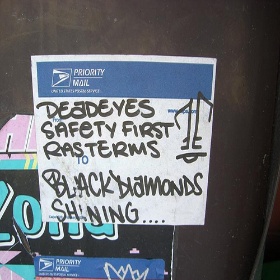 PRIORITY
MAIL
UNITED STATES POSTAL SERVICE
DEADEYES
SAFETY FIRST
RASTERMS
TO
BLACK DIAMONDS
SHINING....
PRIORITY
MAIL